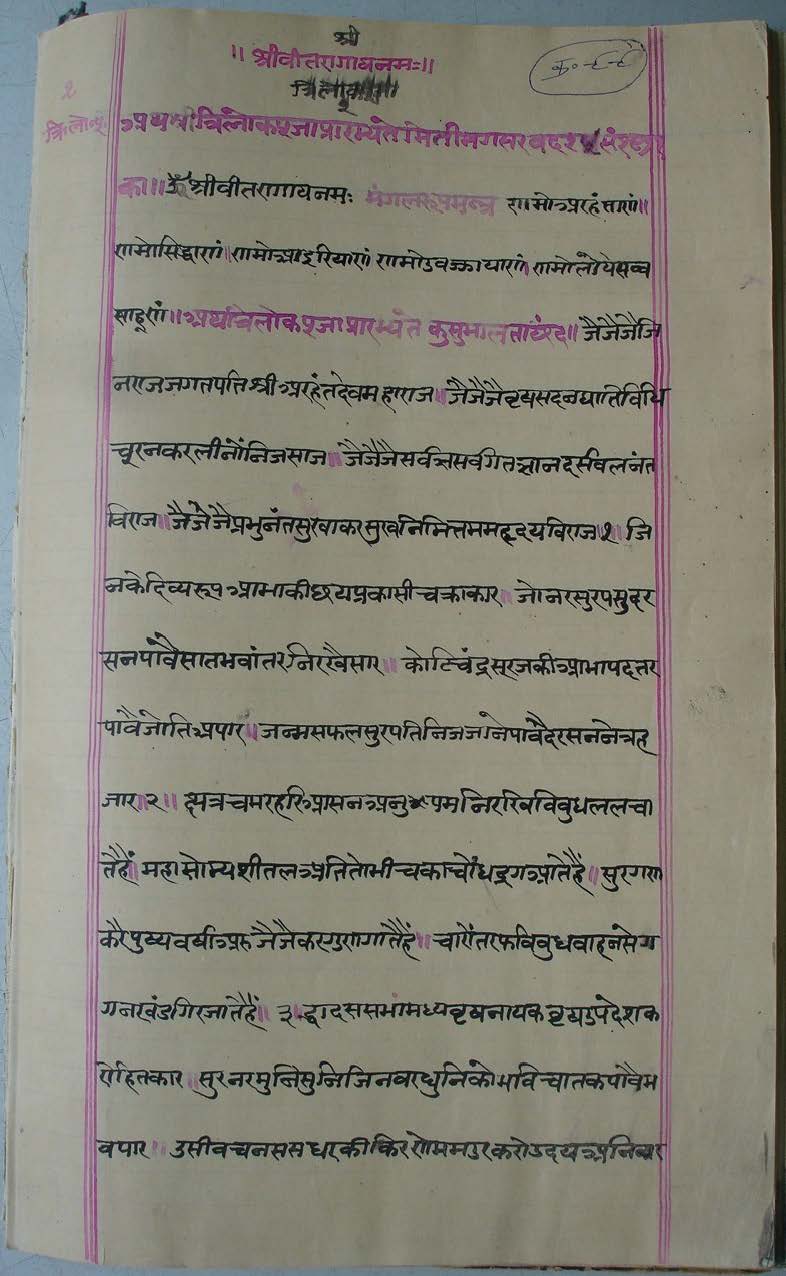 श्री
॥ श्रीवीतरागायनमः॥
त्रिलोकपूजाप्रारभ्यते मिती मगसरवद
का॥ ॐ श्रीवीतरागायनमः मंगलरूपमन्त्र णमोअरहंताणं॥
णमोसिद्धाणं॥ णमोआइरियाणं णमोउवज्झायाणं णमोलोयेसव्व
साहूणं॥ अथत्रिलोकपूजाप्रारभ्यंते कुसुमालताछंद॥ जैजैजैजि
नराजजगतपतिश्रीअरहंतदेवमहाराज॥ जैजैजैवृषसदनघातिविधि
चूरनकरलीनोंनिजसाज॥ जैजैजैसर्वज्ञसर्वगितज्ञानदर्सवलनंत
विराज॥ जैजैजैप्रभुनंतसुखाकरसुखनिमित्तममहृदयविराज१॥ जि
नकेदिव्यरूपआभाकीछयप्रकासीचक्राकार॥ जोनरसुरपसुदर
सनपांवैसातभवांतरनिरखैसार॥ कोटिचंद्रसूरजकीआभापदतर
पावैजोतिअपार॥ जन्मसफलसुरपतिनिजजानेपावैदरसननेत्रह
जार॥२॥ क्षत्रचमरहरिआसनअनुपमनिरखिविवुधललचा
तेहैं॥ महासोम्यशीतलअतितोभीचकाचोंधद्रगआतेहैं॥ सुरगण
करैपुष्पवर्षाअरुजैजैकरगुणगातेहैं॥ चारोंतरफविवुधवाहनसेग
गनखंडगिरजातेहैं॥३॥ द्वादससभामध्यवृषनायकवृषउपदेशक
रोहितकार॥ सुरनरमुनिसुनिजिनवरधुनिकोभविचातकपांवैभ
वपार॥ उसीवचनससधरकीकिरणेंममउरकरोउदयअनिवार